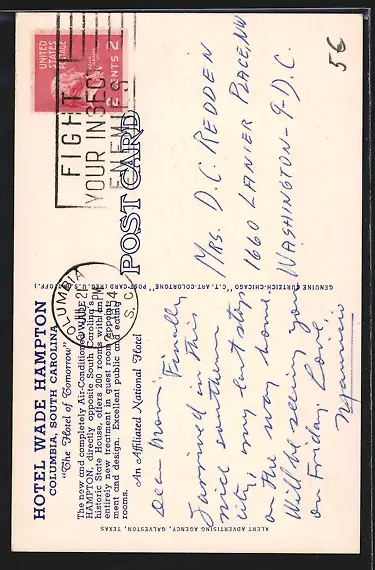 HOTEL WADE HAMPTON
COLUMBIA, SOUTH CAROLINA
"The Hotel of Tomorrow"
The new and completely Air-Conditioned WADE
HAMPTON, directly opposite South Carolina's
historic State House, offers 200 rooms with an
entirely new treatment in guest room appoint-
ment and design. Excellent public and eating
rooms.
An Affiliated National Hotel
Dear Mom, Finally
I arrived in this
nice southern
city, my last stop
on the way home.
Will be seeing you
on Friday. Love.
ALERT ADVERTISING AGENCY, GALVESTON, TEXAS
GENUINE CURTEICH-CHICAGO "C.T. ART-COLORTONE" POST CARD (REG. U.S. PAT. OFF.)
POST CARD
UNITED
STATES
POSTAGE
CENTS 2
FIGHT
YOUR INSECT
ENEMIES
COLUMBIA
PM
S.C.
MRS. D.C. REDDEN
1660 LANIER PLACE, NW
WASHINGTON-9-D.C.
5€